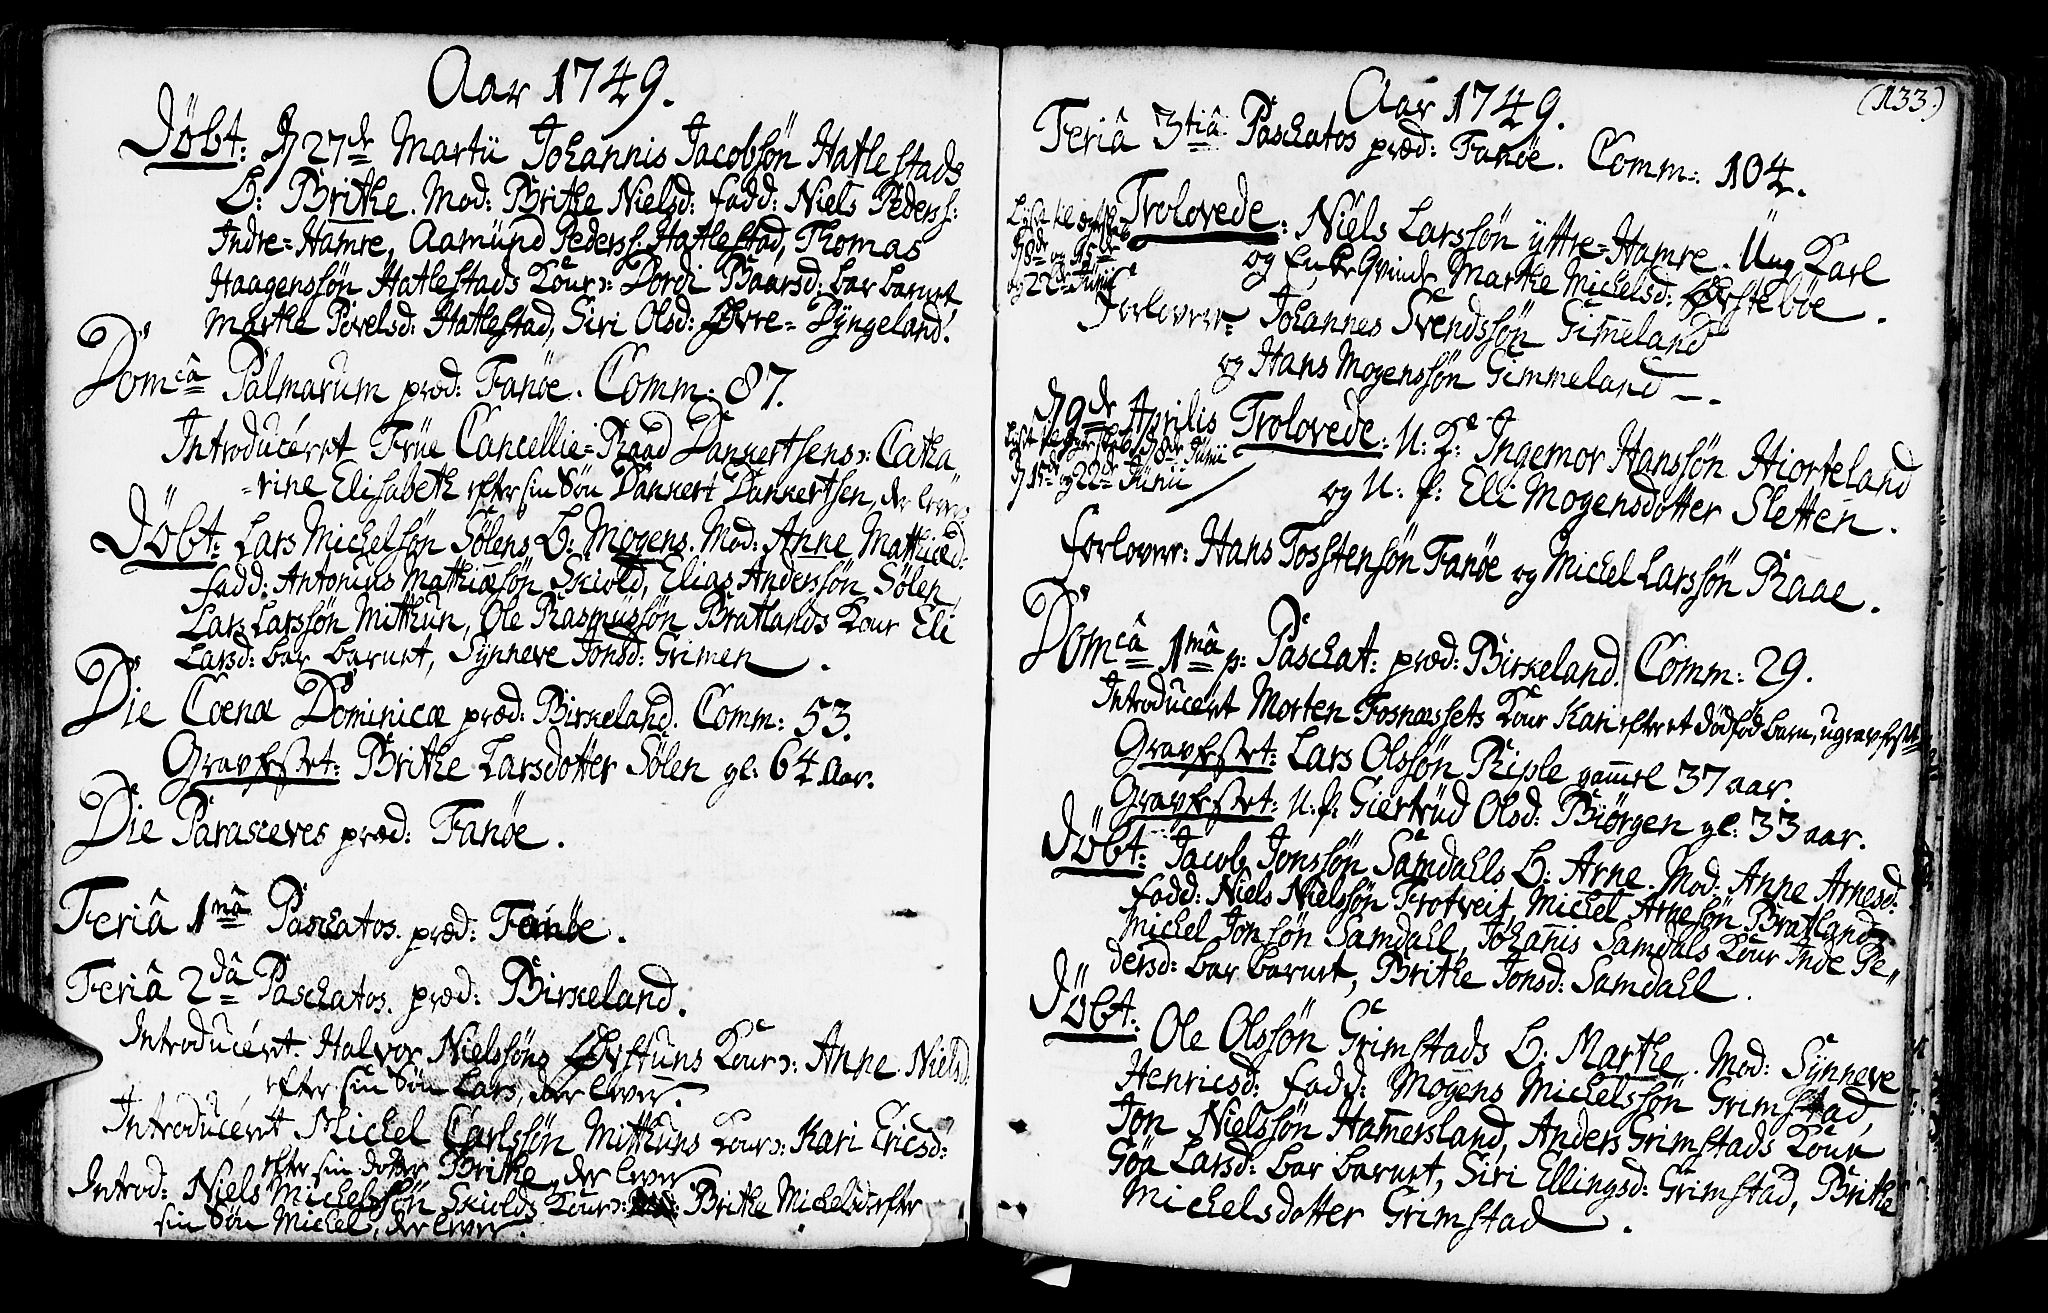 Aar 1749.
Döbt: D 27de Martii Johannis Jacobsön Hatlestads
B: Brithe. Mod: Brithe Nielsd: Fadd: Niels Pederss:
Indre=Hamre, Aamund Peders: Hatlestad, Thomas
Haagenssön Hatlestads Kone: Dordi Baarsd: bar barnet,
Marthe Povelsd: Hatlestad, Siri Olsd: Øvre=Dyngeland.
Domcâ Palmarum præd: Fanöe. Comm: 87.
Introduceret Frue Cancellie=Raad Dankertsens: Catha
=rine Elisabeth efter sin Sön Dankert Dankertsen, der lever.
Döbt: Lars Michelsön Sölens B: Mogens. Mod: Anne Mathiæd:
Fadd: Antonius Mathiæsön Skiold, Elias Anderssön Sölen,
Lars Larssön Mitthun, Ole Rasmussön Bratlands Kone Eli
Larsd: bar barnet, Synneve Jonsd: Grimen.
Die Coenæ Dominicæ præd: Birkeland. Comm: 53.
Gravfestet: Brithe Larsdotter Sölen gl: 64 Aar.
Die Parasceves præd: Fanöe.
Feriâ 1mâ Paschatos. præd: Fanöe.
Feriâ 2dâ Paschatos. præd: Birkeland.
Introduceret. Halvor Nielssöns Ørstuns Kone: Anne Nielsd:
efter sin Sön Lars, der lever.
Introduceret Michel Carlssön Mitthuns Kone: Kari Ericsd:
efter sin dotter Brithe, der lever
Introd: Niels Michelssön Skiolds Kone: Brithe Michelsd: efter
sin Sön Michel, der lever.
(133.)
Aar 1749.
Feriâ 3tiâ Paschatos præd: Fanöe. Comm: 104.
Trolovede: Niels Larssön yttre=Hamre. Ung Karl
og Enke Qvinde Marthe Michelsd: Ørsteböe.
8de og 15de
og 22de Junii
Forlover: Johannes Svendssön Gimeland
og Hans Mogenssön Gimmeland.
D 9de Aprilis Trolovede: U: K: Ingemor Hanssön Hiorteland
og U: P: Eli Mogensdotter Sletten.
8de Junii
D 15de og 22de Junii
Forlover: Hans Tosstensön Fanöe og Michel Larssön Raae.
Domcâ 1mâ p: Paschat: præd: Birkeland. Comm: 29.
Introduceret Morten Fosnæssets Kone Kari efter et dödföd barn, ugravfestet
Gravfestet: Lars Olssön Riple gamel 37 aar.
Gravfestet: U: P: Giertrud Olsd: Biörgen gl: 33 aar.
Döbt: Jacob Jonssön Samdahls B: Arne. Mod: Anne Arnesd:
Fadd: Niels Nielssön Trotveit, Michel Arnesön Bratland,
Michel Jonssön Samdahl, Johanis Samdals Kone Inde Pe=
dersd: bar barnet, Brithe Jonsd: Samdahl.
Döbt: Ole Olssön Grimstads B: Marthe. Mod: Synneve
Henricsd: Fadd: Mogens Michelssön Grimstad,
Jon Nielssön Hamersland, Anders Grimstads Kone
Göa Larsd: bar barnet, Siri Ellingsd: Grimstad, Brithe
Michelsdotter Grimstad.